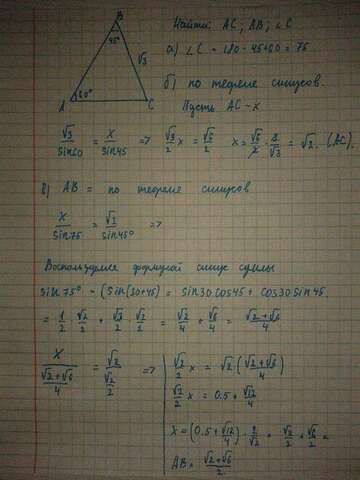 B
45°
√3
A
60°
C
Найти AC; AB; ∠C
а) ∠C = 180 - 45+60 = 75
б) по теореме синусов.
Пусть AC - x
√3/sin60 = x/sin45 => √3/2 x = √6/2 x = √6/2 · 2/√3 = √2. (AC).
в) AB = по теореме синусов
x/sin75 = √2/sin45° =>
Воспользуемся формулой синус суммы
sin75° - (sin(30+45) = sin30cos45 + cos30sin45.
= 1/2 · √2/2 + √3/2 · √2/2 = √2/4 + √6/4 = √2+√6/4
x/(√2+√6/4) = √2/(√2/2) =>
√2/2 x = √2 (√2+√6/4)
√2/2 x = 0.5 + √12/4
x = (0.5 + √12/4) · 2/√2 = √2/2 + √6/2 =
AB = √2+√6/2.